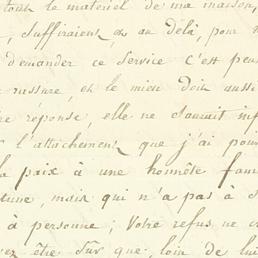 tout le matériel de ma maison,
, suffiraient, et au delà, pour
demander ce service c'est peu
rassure, et le mien doit aussi
réponse, elle ne saurait inf
l'attachement que j'ai pour
a paix à une honnête fam
tune, mais qui n'a pas à
à personne ; Votre refus ne
être sûr que, loin de lui